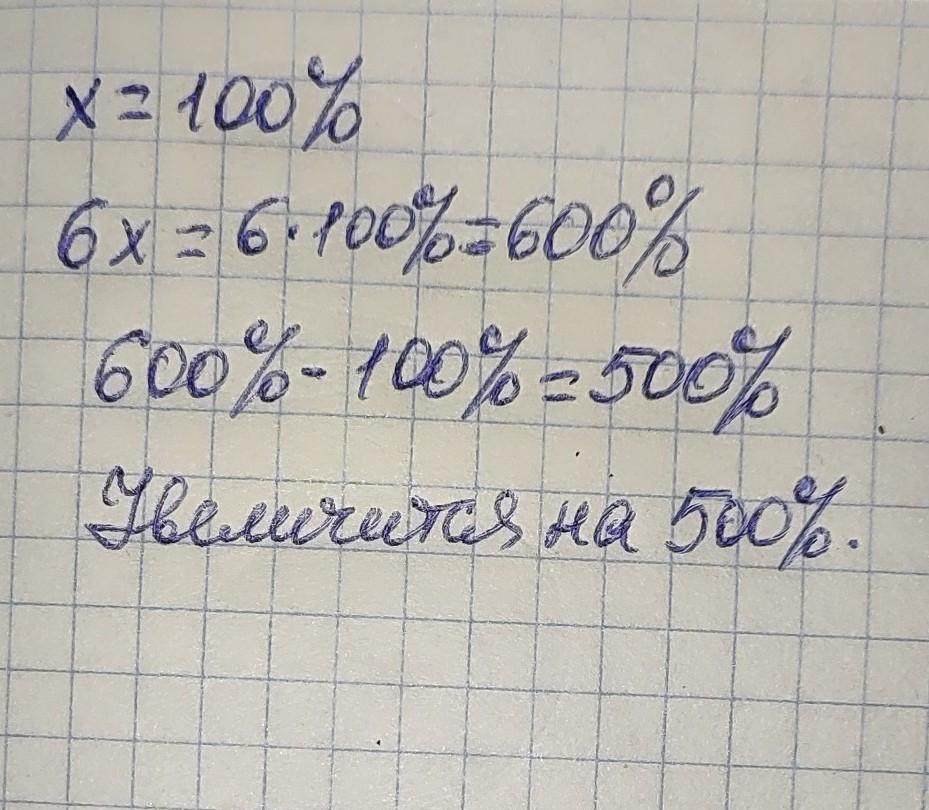 x = 100%
6x = 6·100% = 600%
600% - 100% = 500%
Увеличится на 500%.